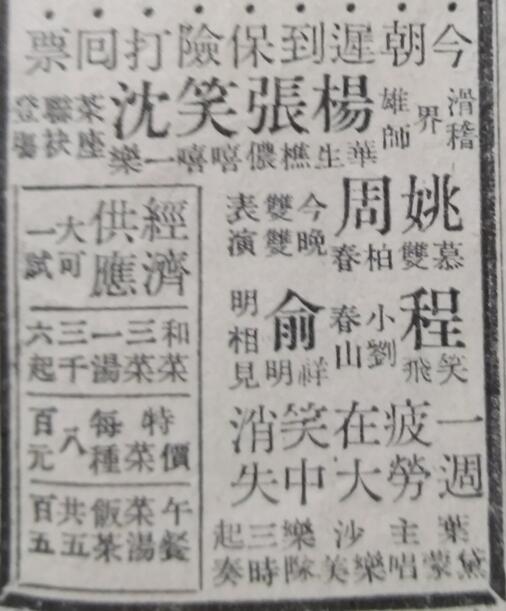 今朝遲到保險打回票
滑稽界雄師
楊華生
張樵儂
笑嘻嘻
沈一樂
茶座聯袂登場
姚慕雙
周柏春
今晚雙雙表演
程笑飛
小劉春山
俞祥明
明相見
一週疲勞在大笑中消失
葉黛蒙主唱沙樂美樂隊三時起奏
經濟供應大可一試
和菜三菜一湯三千六起
特價菜每種八百元
午餐菜湯飯茶共五百五